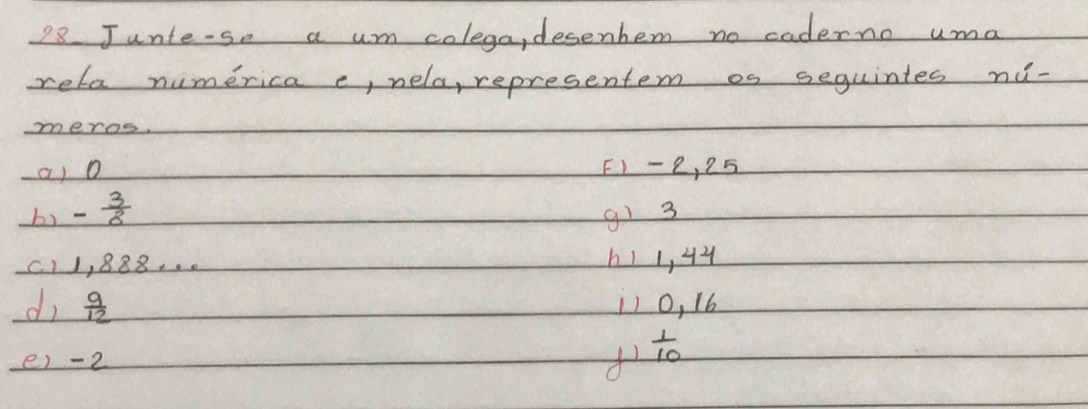 28- Junte-se a um colega, desenhem no caderno uma
reta numérica e, nela, representem os seguintes nú-
meros.
a) 0 F) -2,25
b) -3/8 g) 3
c) 1,888... h) 1,44
d) 9/12 i) 0,16
e) -2 j) 1/10